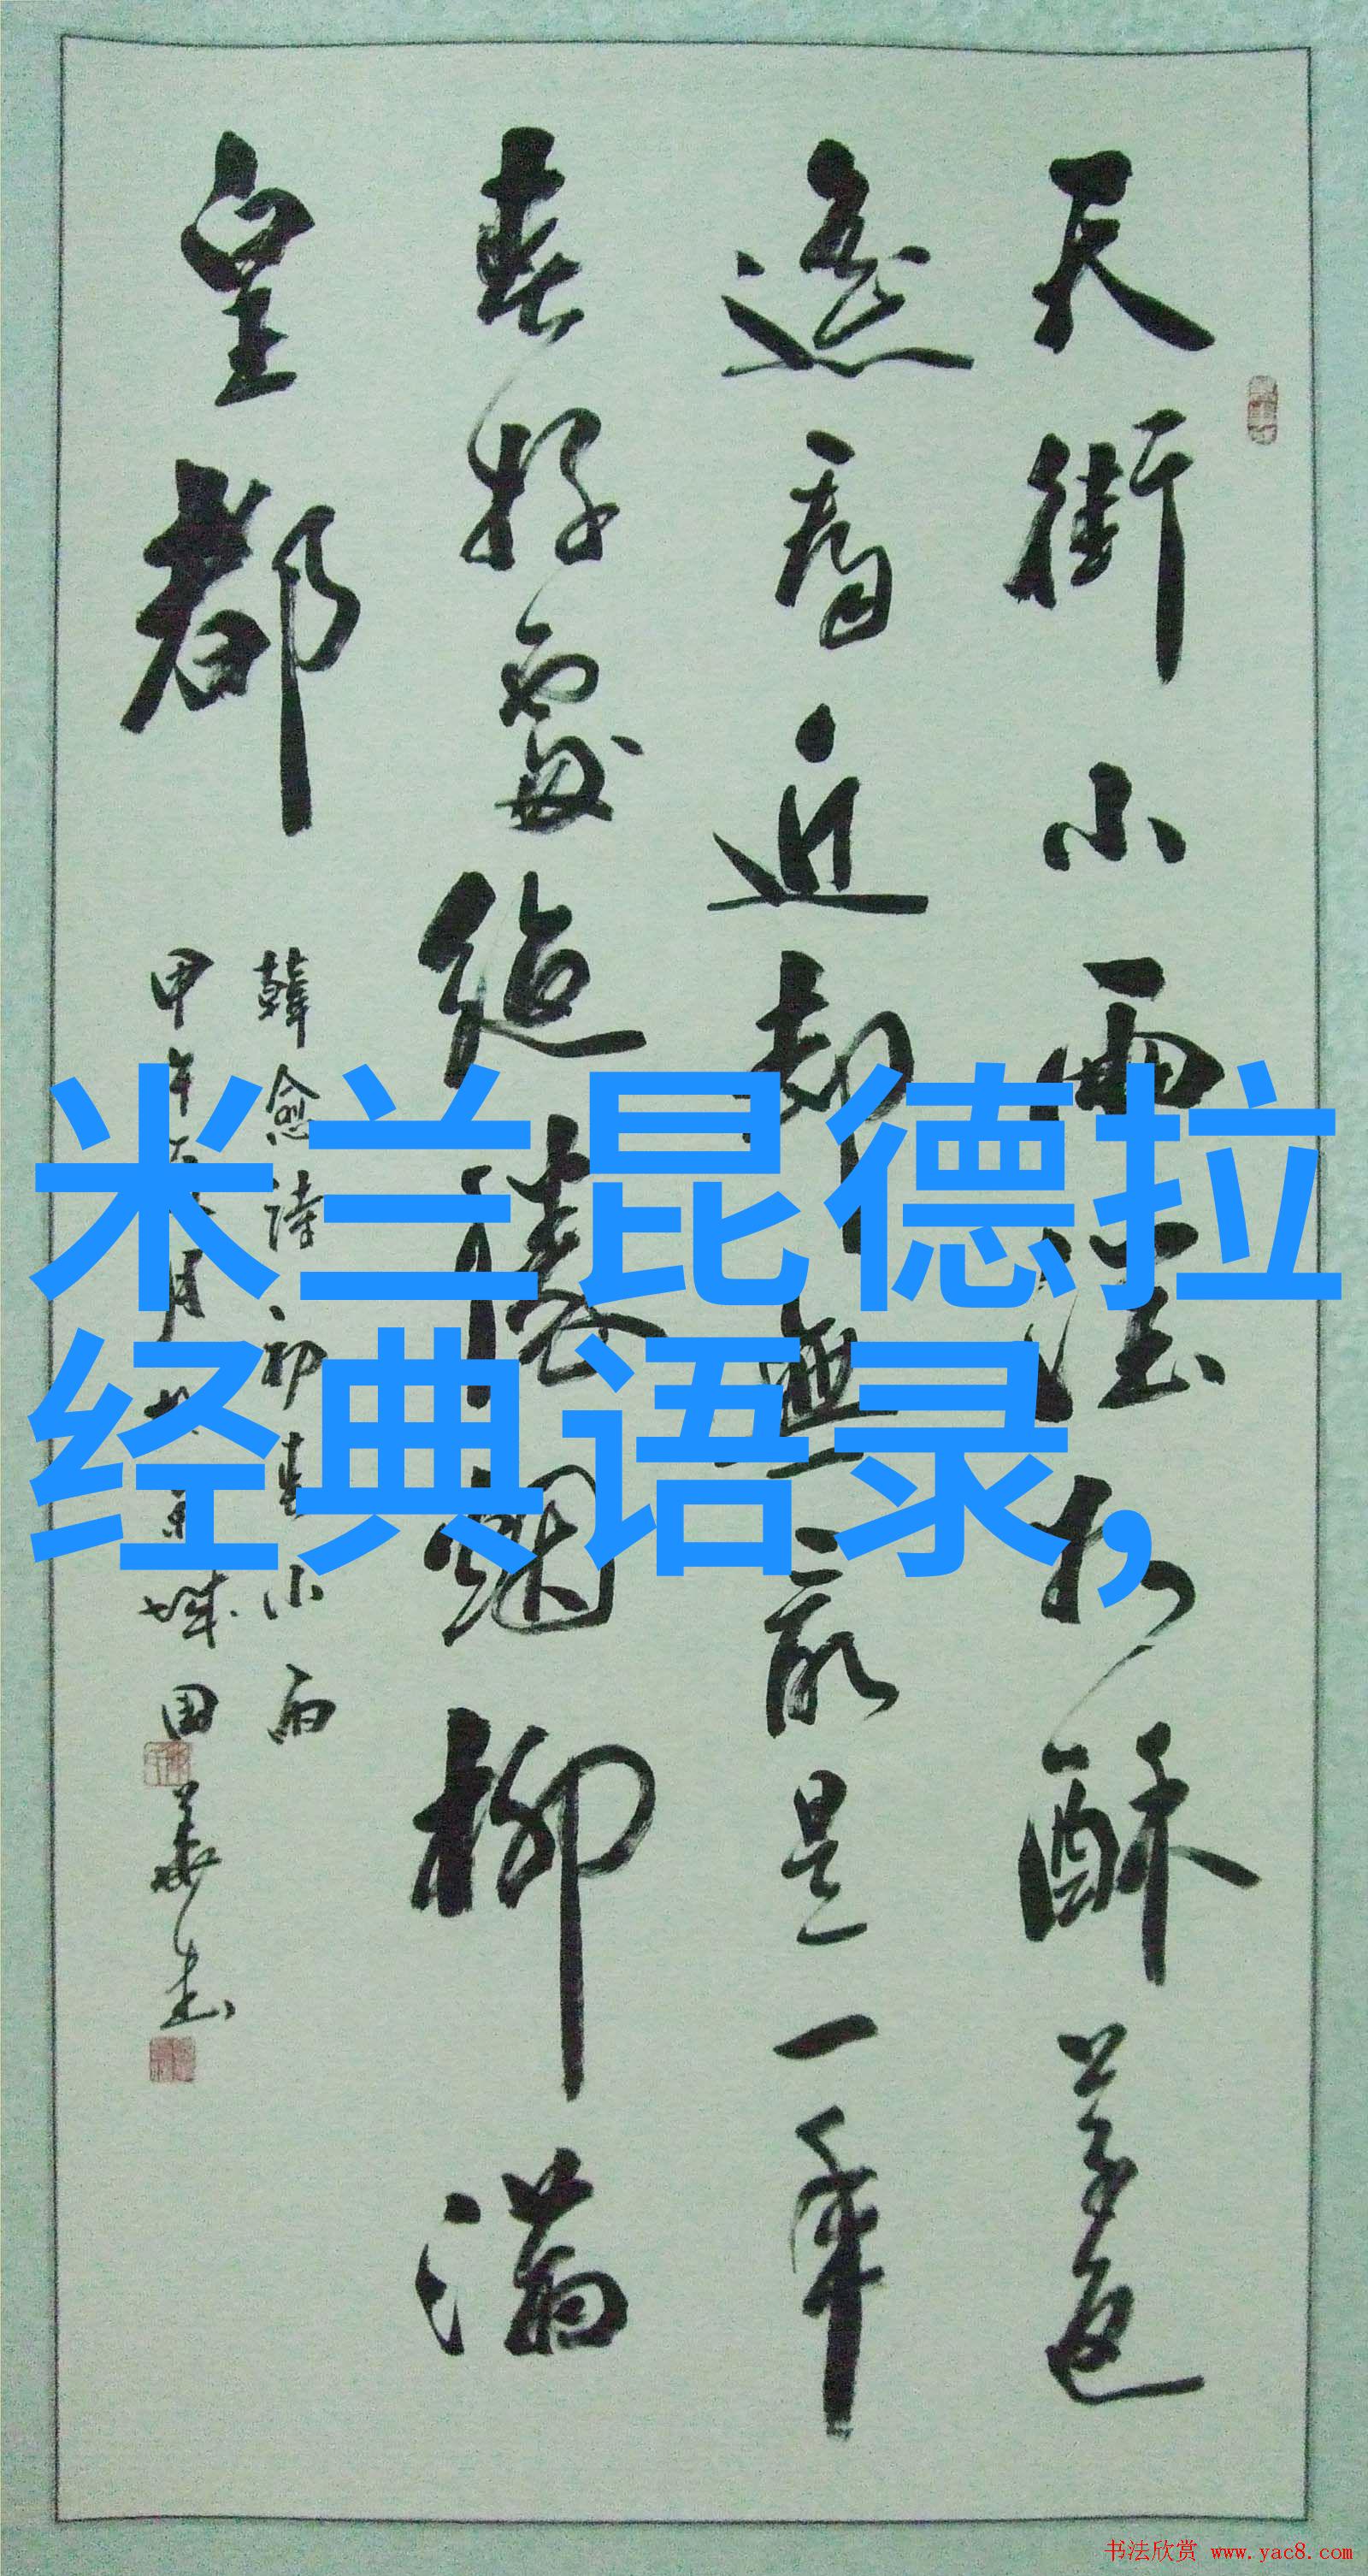 天街小雨润如酥草色
遥看近却无最是一年
春好处绝胜烟柳满
皇都
韩愈诗初春小雨
甲午 月 京城国华书
米兰昆德拉
经典语录，
书法欣赏 www.yac8.com